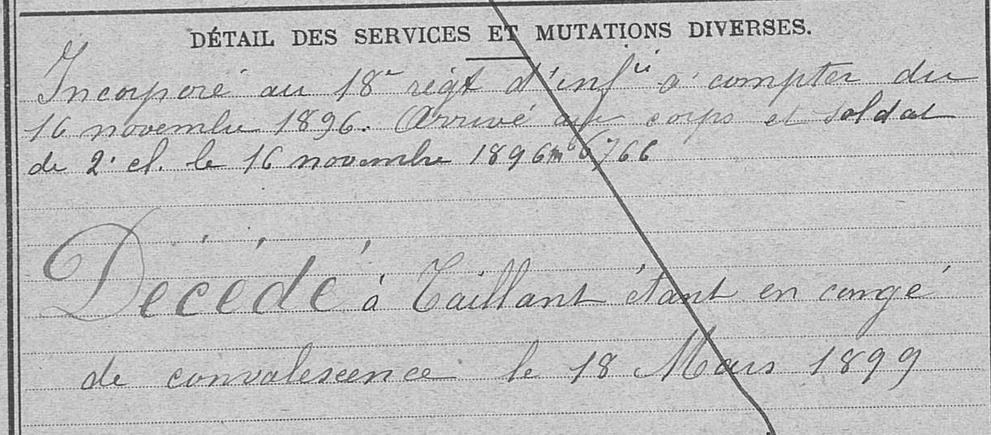 DÉTAIL DES SERVICES ET MUTATIONS DIVERSES.
Incorporé au 18e régt d'infie à compter du
16 novembre 1896. Arrivé au corps et soldat
de 2e cl. le 16 novembre 1896 mle 6766
Décédé à Taillant étant en congé
de convalescence le 18 Mars 1899